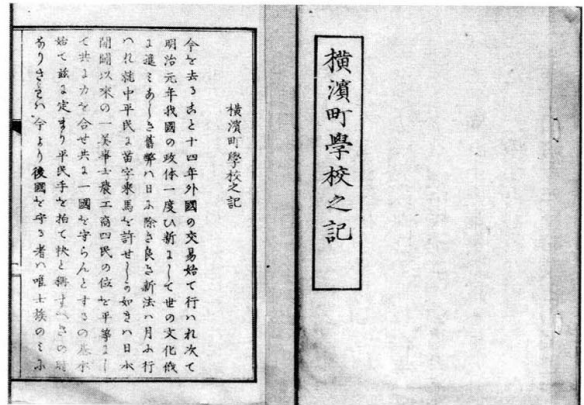 横濱町學校之記
横濱町學校之記
今を去ること十四年外國の交易始て行ハれ次て
明治元年我國の政体一度ひ新にして世の文化
舊弊ハ日に除き良き新法ハ月に行
ハれ就中平民に苗字乗馬を許せしの如きハ日本
開闢以來の一美事士農工商四民の位を平等にし
て共に力を合せ共に一國を守らんとするの基本
始て茲に定まり平民手を拍て快と
今より後國を守る者ハ唯士族のミに